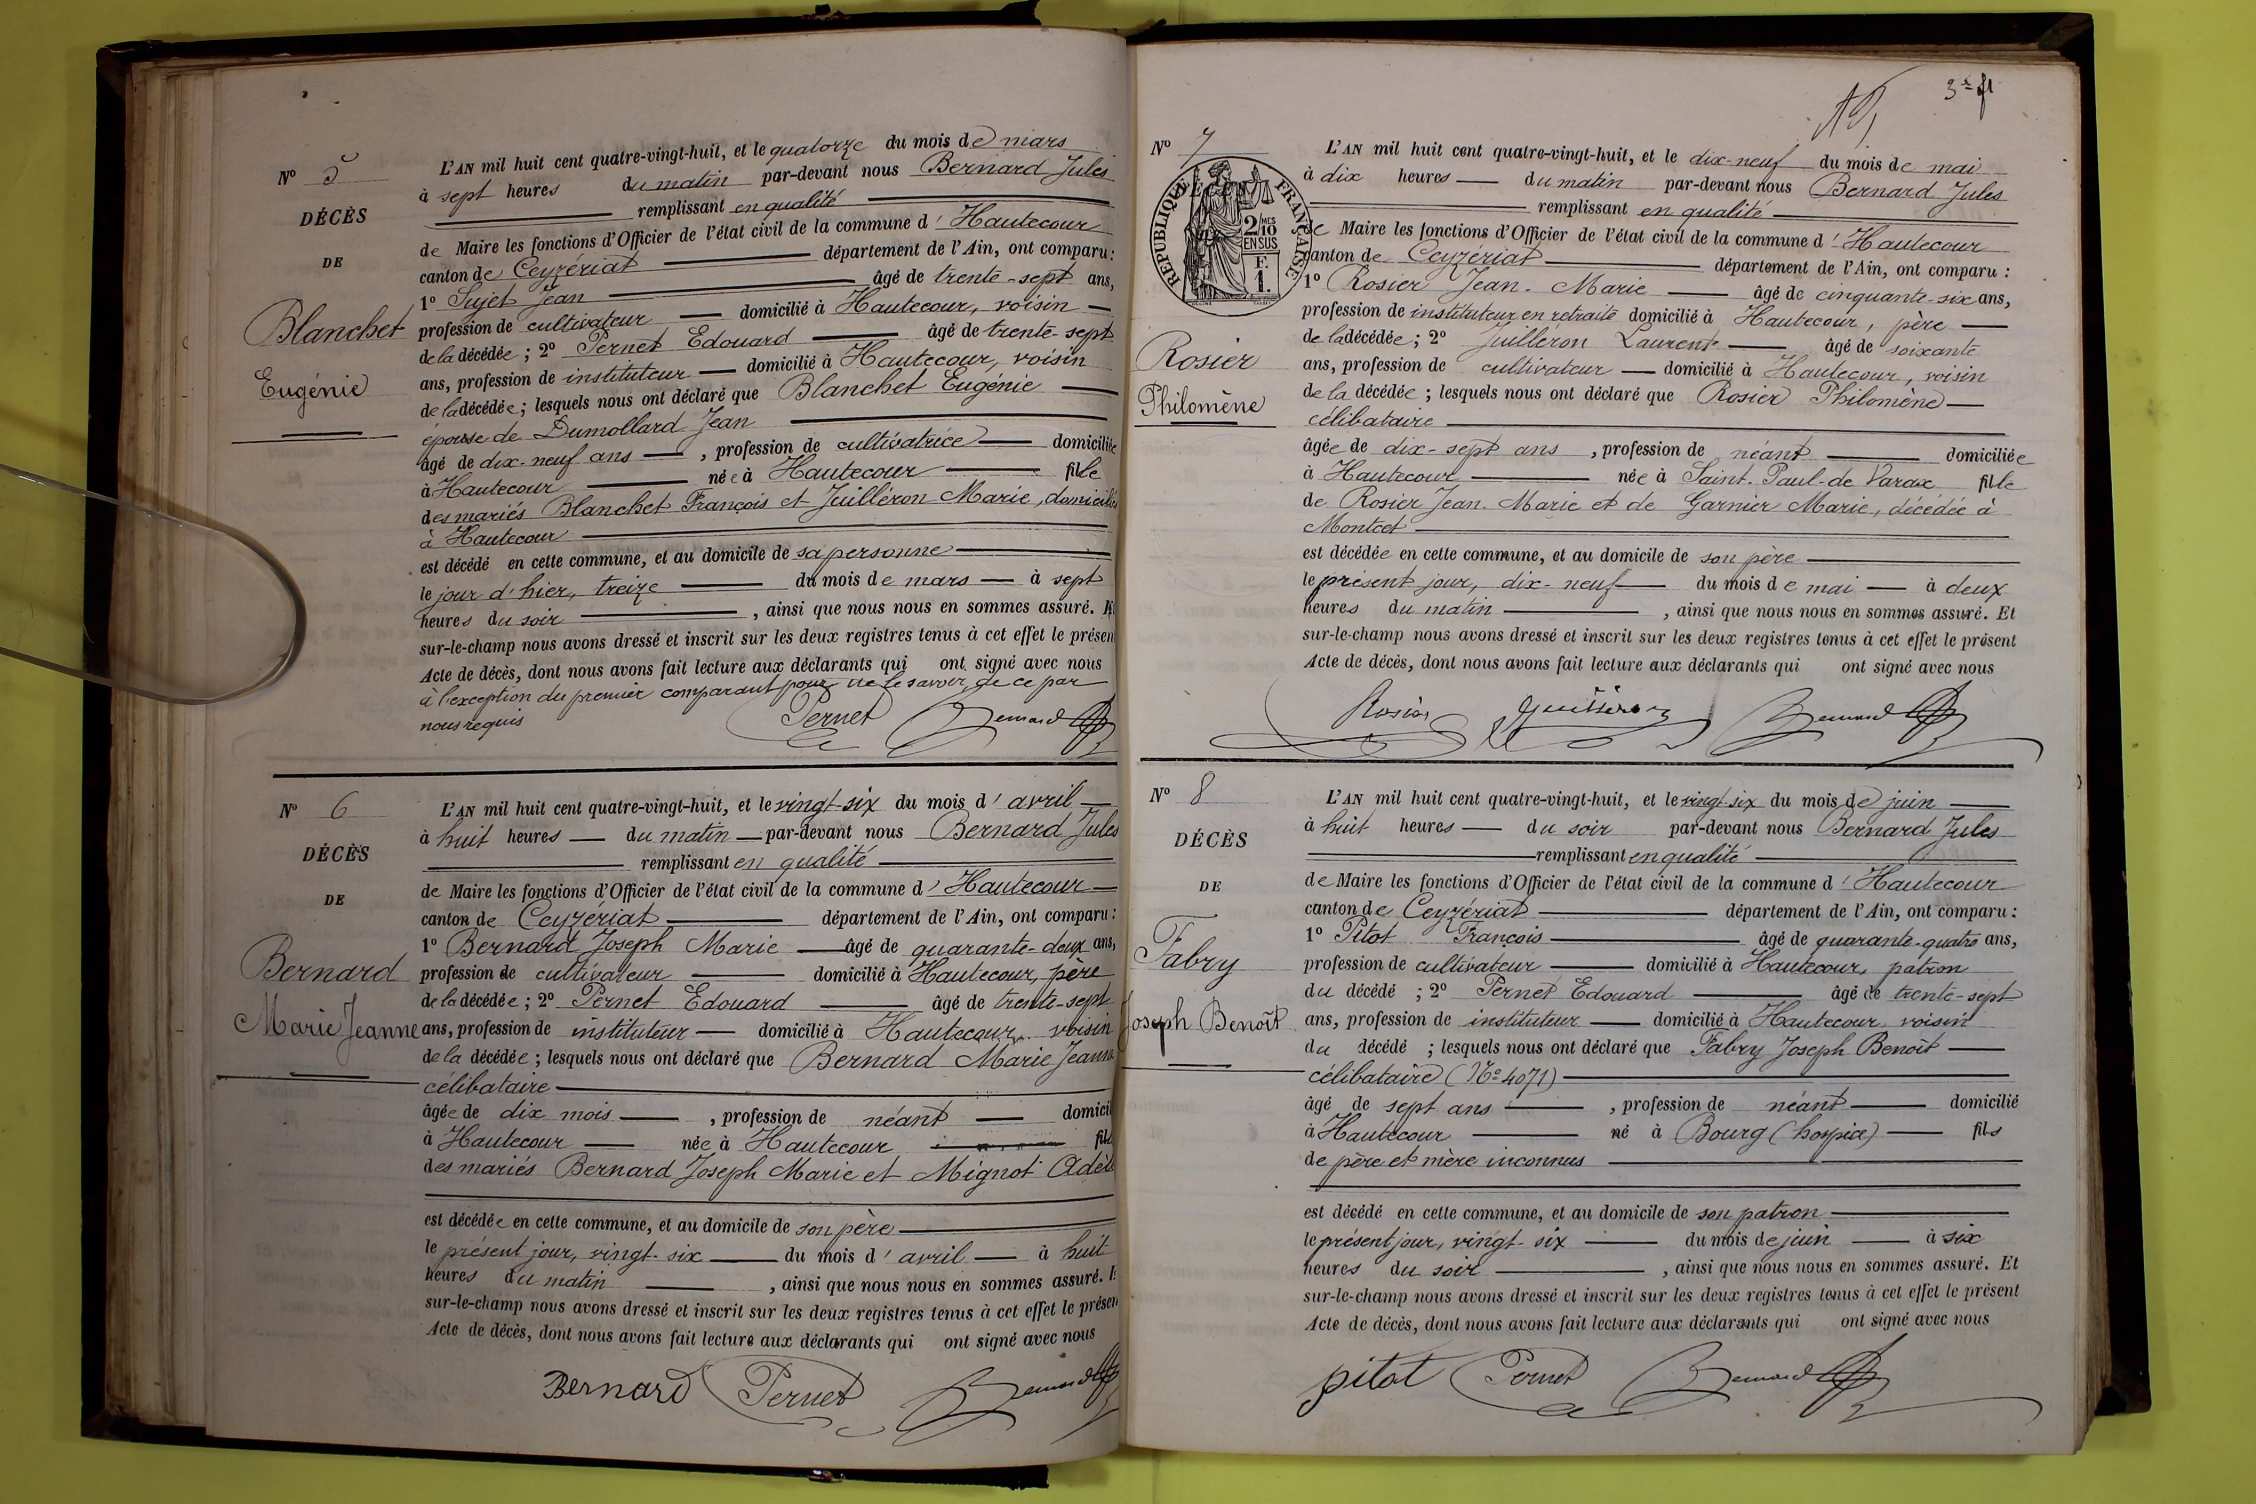 N° 5
DÉCÈS
DE
Blanchet
Eugénie
L'AN mil huit cent quatre-vingt-huit, et le quatorze du mois de mars
à sept heures du matin par-devant nous Bernard Jules
remplissant en qualité
de Maire les fonctions d'Officier de l'état civil de la commune d' Hautecour
canton de Ceyzériat département de l'Ain, ont comparu :
1° Sujet Jean âgé de trente-sept ans,
profession de cultivateur domicilié à Hautecour, voisin
de la décédée ; 2° Pernet Edouard âgé de trente-sept
ans, profession de instituteur domicilié à Hautecour, voisin
de la décédée ; lesquels nous ont déclaré que Blanchet Eugénie
épouse de Dumollard Jean
âgé de dix-neuf ans , profession de cultivatrice domiciliée
à Hautecour née à Hautecour fille
des mariés Blanchet François et Juilléron Marie, domiciliés
à Hautecour
est décédé en cette commune, et au domicile de sa personne
le jour d'hier, treize du mois de mars à sept
heures du soir , ainsi que nous nous en sommes assuré. Et
sur-le-champ nous avons dressé et inscrit sur les deux registres tenus à cet effet le présen
Acte de décès, dont nous avons fait lecture aux déclarants qui ont signé avec nous
à l'exception du premier comparant pour ne le savoir, de ce par
nous requis
Pernet Bernard
N° 6
DÉCÈS
DE
Bernard
Marie Jeanne
L'AN mil huit cent quatre-vingt-huit, et le vingt-six du mois d' avril
à huit heures du matin par-devant nous Bernard Jules
remplissant en qualité
de Maire les fonctions d'Officier de l'état civil de la commune d' Hautecour
canton de Ceyzériat département de l'Ain, ont comparu :
1° Bernard Joseph Marie âgé de quarante-deux ans,
profession de cultivateur domicilié à Hautecour, père
de la décédée ; 2° Pernet Edouard âgé de trente-sept
ans, profession de instituteur domicilié à Hautecour voisin
de la décédée ; lesquels nous ont déclaré que Bernard Marie Jeanne
célibataire
âgée de dix mois , profession de néant domicil
à Hautecour née à Hautecour fille
des mariés Bernard Joseph Marie et Mignot Adèle
est décédée en cette commune, et au domicile de son père
le présent jour, vingt-six du mois d' avril à huit
heures du matin , ainsi que nous nous en sommes assuré. E
sur-le-champ nous avons dressé et inscrit sur les deux registres tenus à cet effet le présen
Acte de décès, dont nous avons fait lecture aux déclarants qui ont signé avec nous
Bernard Pernet Bernard
3e f
N° 7
RÉPUBLIQUE FRANÇAISE
2/10 MES
EN SUS
F.
1.
Rosier
Philomène
L'AN mil huit cent quatre-vingt-huit, et le dix-neuf du mois de mai
à dix heures du matin par-devant nous Bernard Jules
remplissant en qualité
de Maire les fonctions d'Officier de l'état civil de la commune d' Hautecour
canton de Ceyzériat département de l'Ain, ont comparu :
1° Rosier Jean-Marie âgé de cinquante-six ans,
profession de instituteur en retraite domicilié à Hautecour, père
de la décédée ; 2° Juilléron Laurent âgé de soixante
ans, profession de cultivateur domicilié à Hautecour, voisin
de la décédée ; lesquels nous ont déclaré que Rosier Philomène
célibataire
âgée de dix-sept ans , profession de néant domiciliée
à Hautecour née à Saint-Paul-de Varax fille
de Rosier Jean-Marie et de Garnier Marie, décédée à
Montcet
est décédée en cette commune, et au domicile de son père
le présent jour, dix-neuf du mois de mai à deux
heures du matin , ainsi que nous nous en sommes assuré. Et
sur-le-champ nous avons dressé et inscrit sur les deux registres tenus à cet effet le présent
Acte de décès, dont nous avons fait lecture aux déclarants qui ont signé avec nous
Rosier Juilléron Bernard
N° 8
DÉCÈS
DE
Fabry
Joseph Benoît
L'AN mil huit cent quatre-vingt-huit, et le vingt-six du mois de juin
à huit heures du soir par-devant nous Bernard Jules
remplissant en qualité
de Maire les fonctions d'Officier de l'état civil de la commune d' Hautecour
canton de Ceyzériat département de l'Ain, ont comparu :
1° Pitot François âgé de quarante-quatre ans,
profession de cultivateur domicilié à Hautecour, patron
du décédé ; 2° Pernet Edouard âgé de trente-sept
ans, profession de instituteur domicilié à Hautecour voisin
du décédé ; lesquels nous ont déclaré que Fabry Joseph Benoît
célibataire (N° 4071)
âgé de sept ans , profession de néant domicilié
à Hautecour né à Bourg (hospice) fils
de père et mère inconnus
est décédé en cette commune, et au domicile de son patron
le présent jour, vingt-six du mois de juin à six
heures du soir , ainsi que nous nous en sommes assuré. Et
sur-le-champ nous avons dressé et inscrit sur les deux registres tenus à cet effet le présent
Acte de décès, dont nous avons fait lecture aux déclarants qui ont signé avec nous
pitot Pernet Bernard